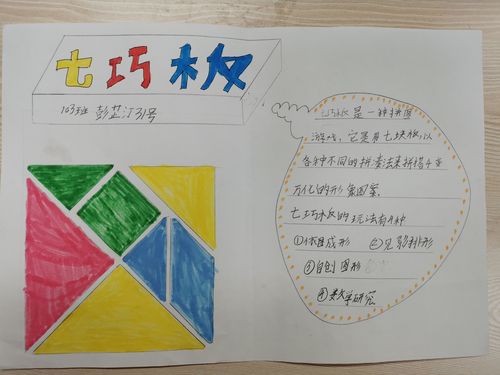 七巧板
103班 彭芷汀 31号
七巧板是一种拼图
游戏,它是用七块板,以
各种不同的拼凑法来拼搭千变
万化的形象图案。
七巧板的玩法有4种
①依图成形 ②见影排形
③自创图形
④数学研究